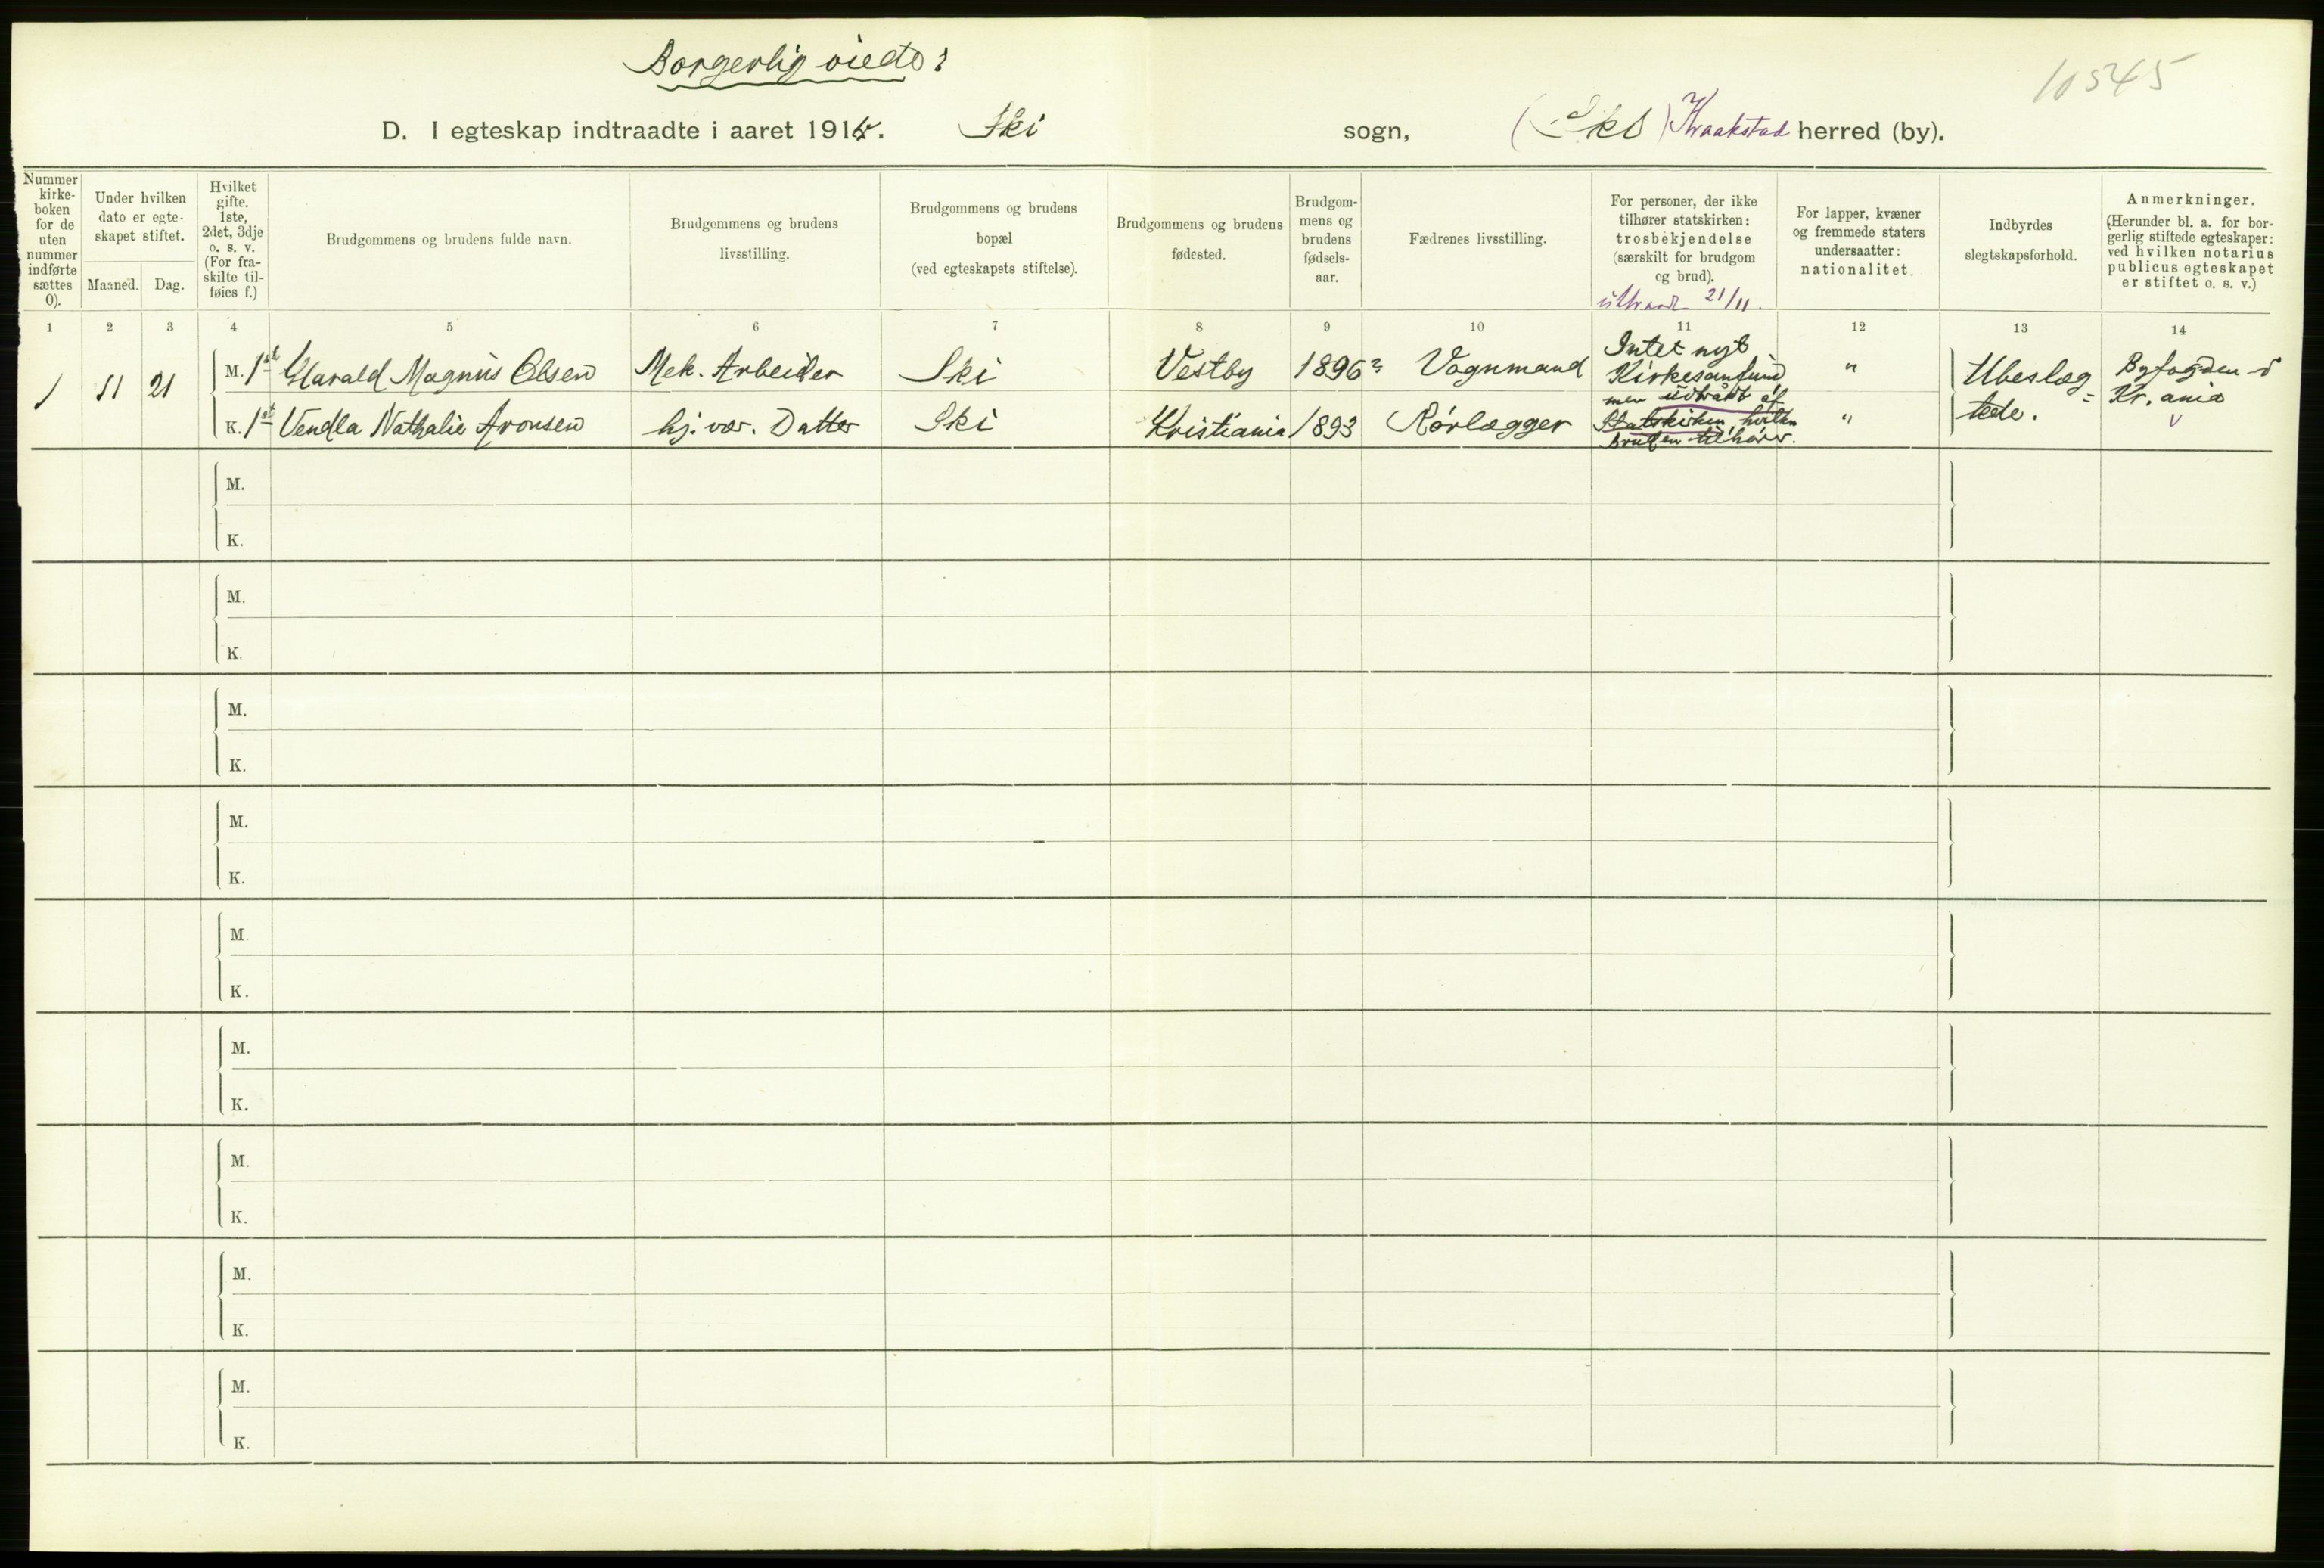 Borgerlig viede:
10545
D. I egteskap indtraadte i aaret 191 . Ski sogn, (Ski) Kraakstad herred (by).
Nummer
kirke-
boken
for de
uten
nummer
indførte
sættes
0).
Under hvilken
dato er egte-
skapet stiftet.
Maaned. Dag.
Hvilket
gifte.
1ste,
2det, 3dje
o. s. v.
(For fra-
skilte til-
føies f.)
Brudgommens og brudens fulde navn.
Brudgommens og brudens
livsstilling.
Brudgommens og brudens
bopæl
(ved egteskapets stiftelse).
Brudgommens og brudens
fødested.
Brudgom-
mens og
brudens
fødsels-
aar.
Fædrenes livsstilling.
For personer, der ikke
tilhører statskirken:
trosbekjendelse
(særskilt for brudgom
og brud).
uttraadt 21/11.
For lapper, kvæner
og fremmede staters
undersaatter:
nationalitet.
Indbyrdes
slegtskapsforhold.
Anmerkninger.
(Herunder bl. a. for bor-
gerlig stiftede egteskaper:
ved hvilken notarius
publicus egteskapet
er stiftet o. s. v.)
1 2 3 4 5 6 7 8 9 10 11 12 13 14
1 11 21
M. 1st Harald Magnus Olsen Mek. Arbeider Ski Vestby 1896? Vognmand
K. 1st Vendla Nathalie Aronsen hj. vær. Datter Ski Kristiania 1893 Rørlægger
Intet nyt
Kirkesamfund
men udtraadt af
Statskirken, hvilken
bruden tilhører.
"
"
Ubeslæg=
tede.
Byfogden i
Kr.ania
M.
K.
M.
K.
M.
K.
M.
K.
M
K.
M.
K.
M.
K.
M.
K.
M.
K.